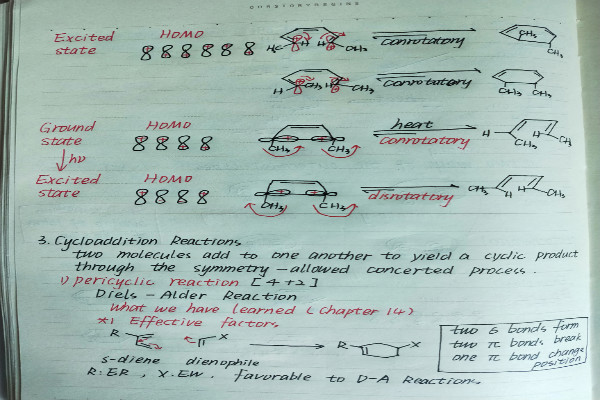 Excited HOMO
state H3C H H CH3 conrotatory CH3 CH3
H CH3 H CH3 conrotatory CH3 CH3
Ground HOMO heat H H
state CH3 CH3 conrotatory CH3 CH3
hν
Excited HOMO
state CH3 CH3 disrotatory CH3 H H CH3
3. Cycloaddition Reactions
two molecules add to one another to yield a cyclic product
through the symmetry-allowed concerted process.
1) pericyclic reaction [4+2]
Diels-Alder Reaction
what we have learned (Chapter 14)
*1 Effective factors
R X R X
s-diene dienophile
R: ER, X: EW. favorable to D-A Reactions
two 6 bonds form
two π bonds break
one π bond change
position